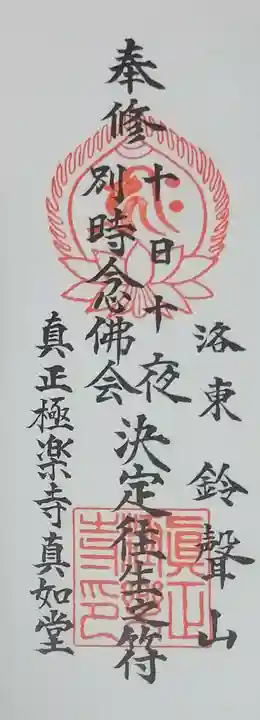 洛東 鈴聲山
奉修
十日十夜
別時念佛会
決定往生之符
真正極楽寺真如堂